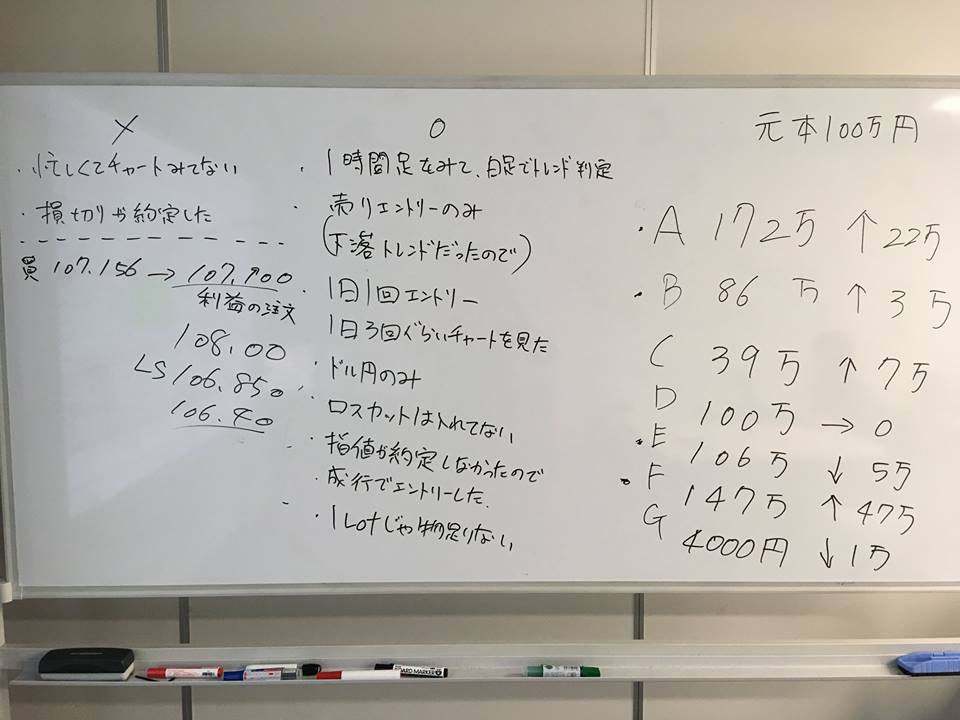 ×
・忙しくてチャートみてない
・損切りが約定した
買 107.156 → 107.700
利益の注文
108.00
LS 106.850
106.40
○
・1時間足をみて、日足でトレンド判定
・売りエントリーのみ
(下落トレンドだったので)
・1日1回エントリー
1日3回ぐらいチャートを見た
・ドル円のみ
・ロスカットは入れてない
・指値が約定しなかったので
・成行でエントリーした.
・1Lotじゃ物足りない
元本100万円
・A 172万 ↑ 22万
・B 86万 ↑ 3万
C 39万 ↑ 7万
D 100万 → 0
・E 106万 ↓ 5万
・F 147万 ↑ 47万
G 4000円 ↓ 1万
BOARD MARKER